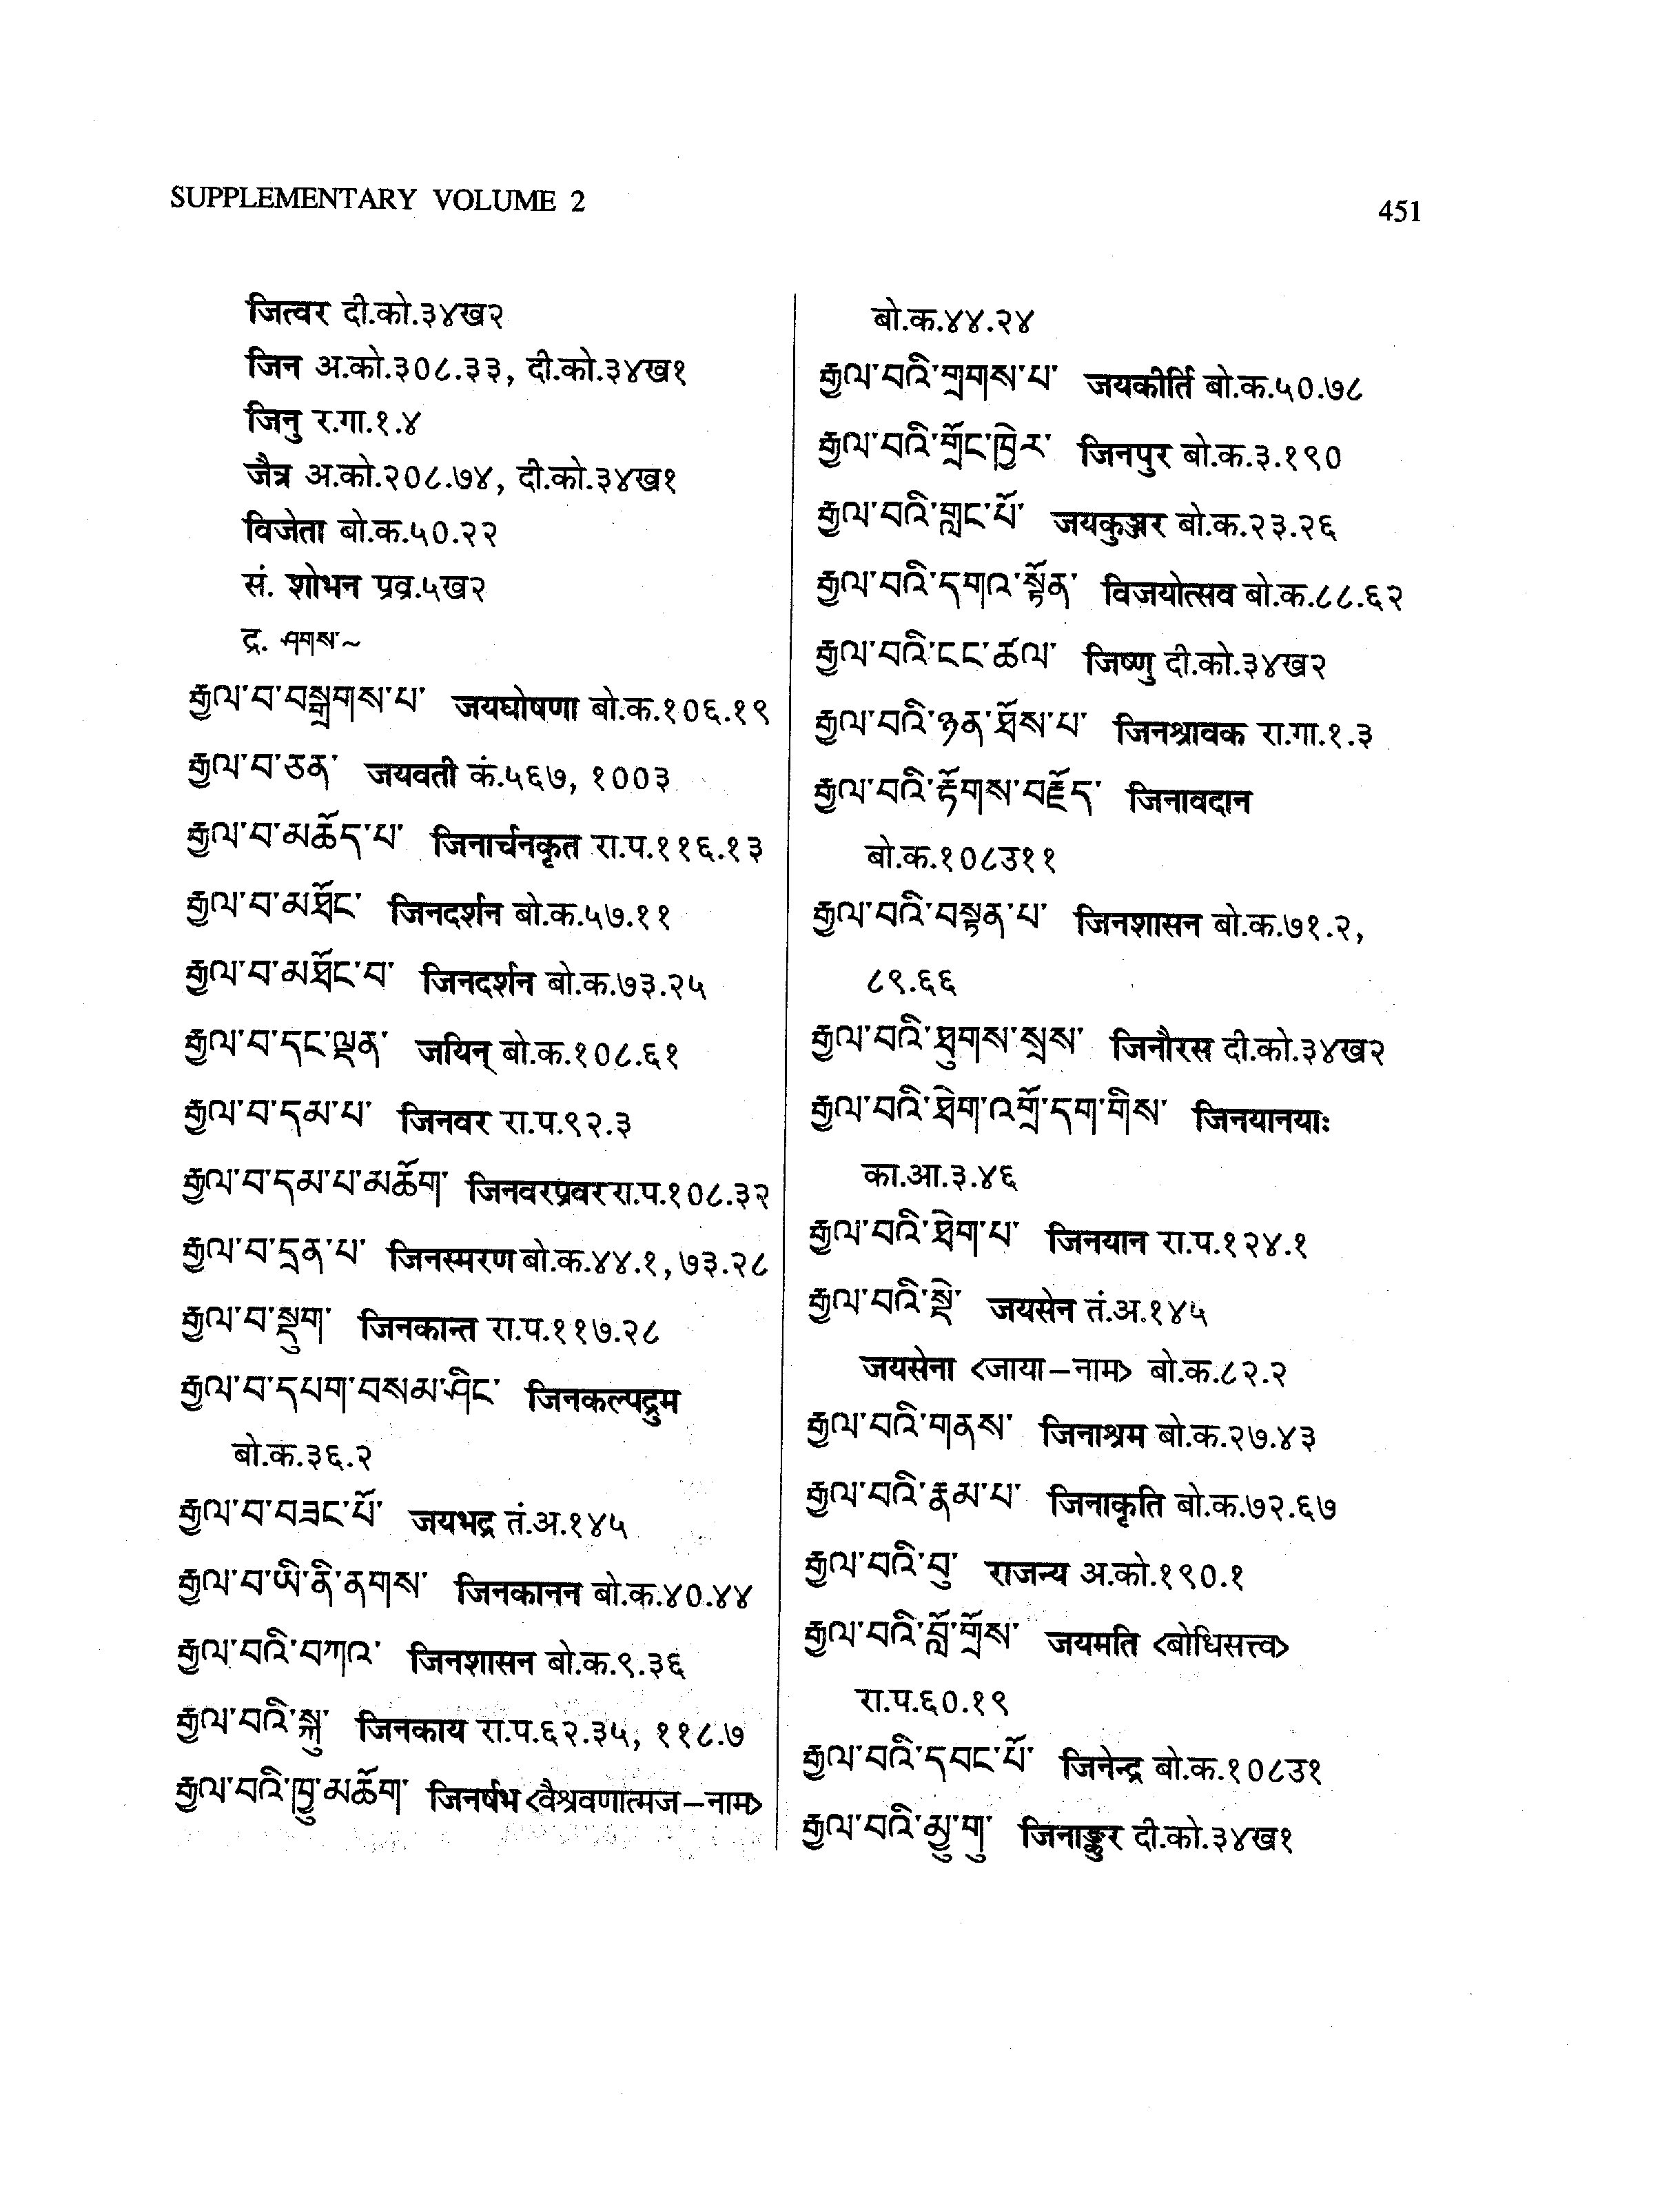 SUPPLEMENTARY VOLUME 2
451
जित्वर दी.को.३४ख२
जिन अ.को.३०८.३३, दी.को.३४ख१
जिनु र.गा.१.४
जैत्र अ.को.२०८.७४, दी.को.३४ख१
विजेता बो.क.५०.२२
सं. शोभन प्रव्र.५ख२
द्र. ཤགས་~
རྒྱལ་བ་བསྒྲགས་པ་ जयघोषणा बो.क.१०६.१९
རྒྱལ་བ་ཅན་ जयवती कं.५६७, १००३
རྒྱལ་བ་མཆོད་པ་ जिनार्चनकृत रा.प.११६.१३
རྒྱལ་བ་མཐོང་ जिनदर्शन बो.क.५७.११
རྒྱལ་བ་མཐོང་བ་ जिनदर्शन बो.क.७३.२५
རྒྱལ་བ་དང་ལྡན་ जयिन् बो.क.१०८.६१
རྒྱལ་བ་དམ་པ་ जिनवर रा.प.९२.३
རྒྱལ་བ་དམ་པ་མཆོག་ जिनवरप्रवर रा.प.१०८.३२
རྒྱལ་བ་དྲན་པ་ जिनस्मरण बो.क.४४.१, ७३.२८
རྒྱལ་བ་སྡུག་ जिनकान्त रा.प.११७.२८
རྒྱལ་བ་དཔག་བསམ་ཤིང་ जिनकल्पद्रुम
बो.क.३६.२
རྒྱལ་བ་བཟང་པོ་ जयभद्र तं.अ.१४५
རྒྱལ་བ་ཡི་ནི་ནགས་ जिनकानन बो.क.४०.४४
རྒྱལ་བའི་བཀའ་ जिनशासन बो.क.९.३६
རྒྱལ་བའི་སྐུ་ जिनकाय रा.प.६२.३५, ११८.७
རྒྱལ་བའི་ཁྱུ་མཆོག་ जिनर्षभ <वैश्रवणात्मज–नाम>
बो.क.४४.२४
རྒྱལ་བའི་གྲགས་པ་ जयकीर्ति बो.क.५०.७८
རྒྱལ་བའི་གྲོང་ཁྱེར་ जिनपुर बो.क.३.१९०
རྒྱལ་བའི་གླང་པོ་ जयकुञ्जर बो.क.२३.२६
རྒྱལ་བའི་དགའ་སྟོན་ विजयोत्सव बो.क.८८.६२
རྒྱལ་བའི་ངང་ཚུལ་ जिष्णु दी.को.३४ख२
རྒྱལ་བའི་ཉན་ཐོས་པ་ जिनश्रावक रा.गा.१.३
རྒྱལ་བའི་རྟོགས་བརྗོད་ जिनावदान
बो.क.१०८उ११
རྒྱལ་བའི་བསྟན་པ་ जिनशासन बो.क.७१.२,
८९.६६
རྒྱལ་བའི་ཐུགས་སྲས་ जिनौरस दी.को.३४ख२
རྒྱལ་བའི་ཐེག་འགྲོ་དག་གིས་ जिनयानयाः
का.आ.३.४६
རྒྱལ་བའི་ཐེག་པ་ जिनयान रा.प.१२४.१
རྒྱལ་བའི་སྡེ་ जयसेन तं.अ.१४५
जयसेना <जाया–नाम> बो.क.८२.२
རྒྱལ་བའི་གནས་ जिनाश्रम बो.क.२७.४३
རྒྱལ་བའི་རྣམ་པ་ जिनाकृति बो.क.७२.६७
རྒྱལ་བའི་བུ་ राजन्य अ.को.१९०.१
རྒྱལ་བའི་བློ་གྲོས་ जयमति <बोधिसत्त्व>
रा.प.६०.१९
རྒྱལ་བའི་དབང་པོ་ जिनेन्द्र बो.क.१०८उ१
རྒྱལ་བའི་མྱུ་གུ་ जिनाङ्कुर दी.को.३४ख१